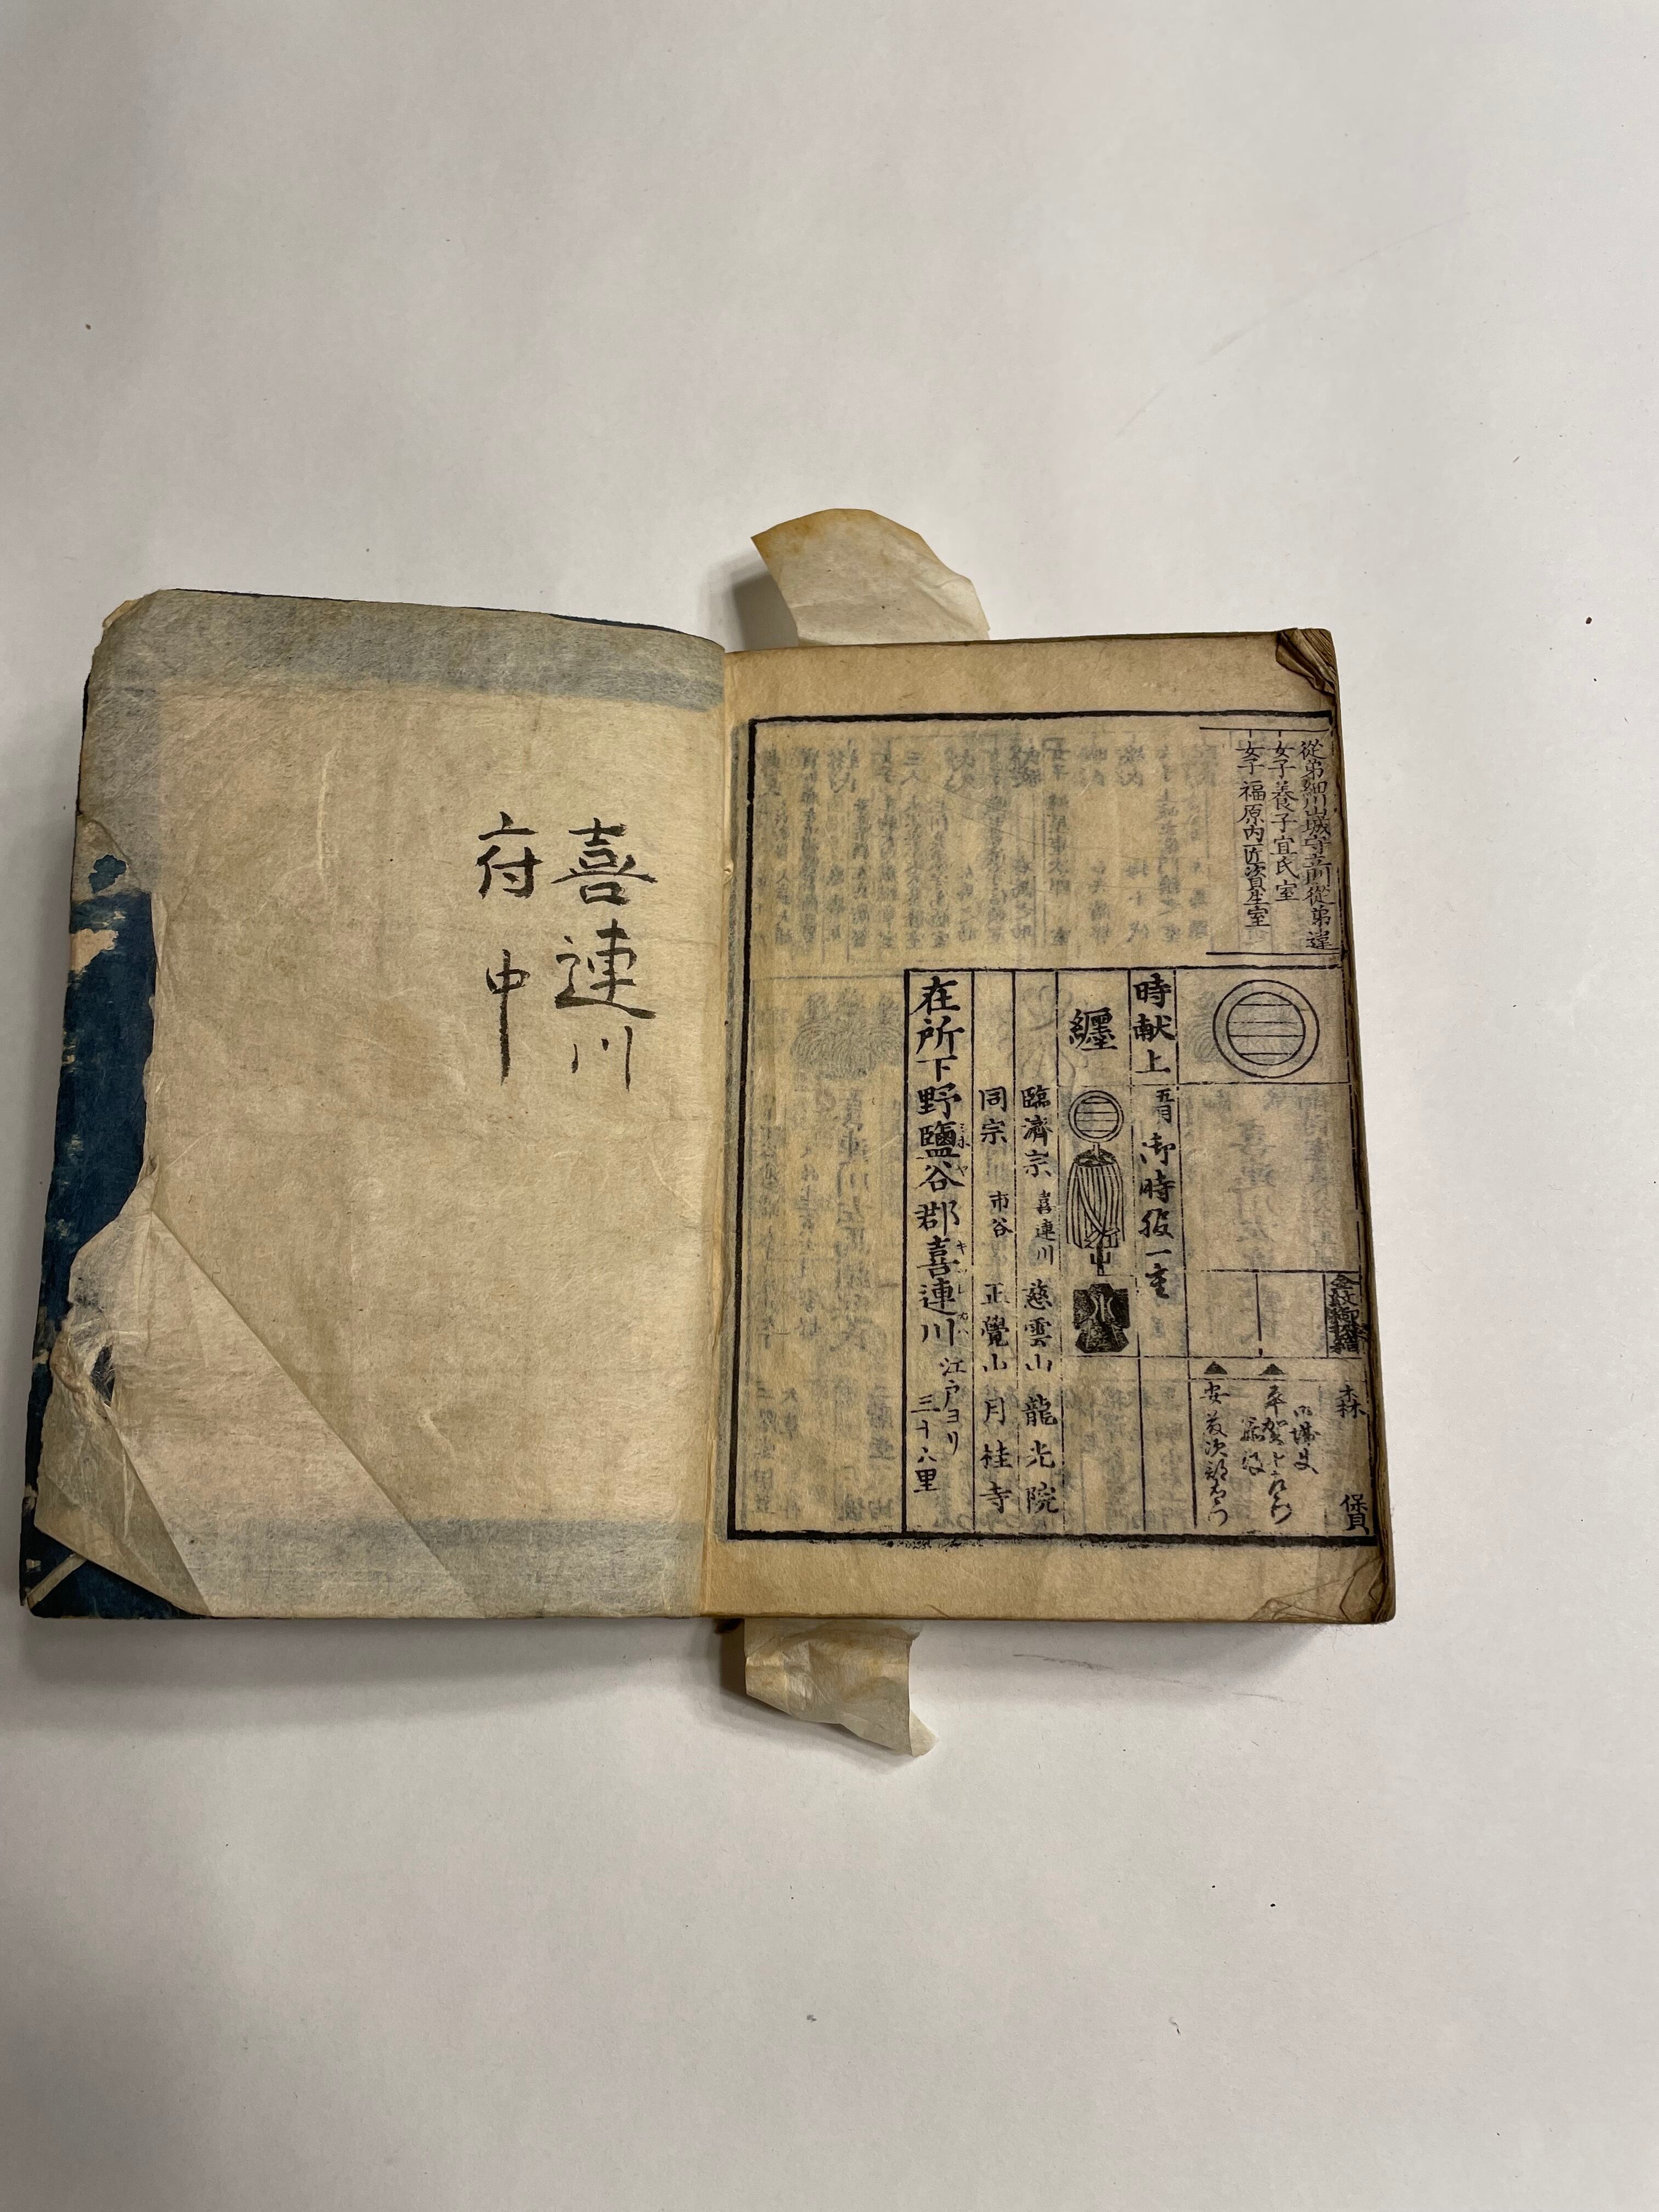 從弟細川山城守立則從弟違
女子養子宜氏室
女子福原内匠資生室
金紋御挾箱
森
保貝
時献上
五月
御時服一重
纏
臨濟宗 喜連川 慈雲山 龍光院
同宗 市谷 正覺山 月桂寺
在所下野鹽谷郡喜連川
江戸ヨリ
三十六里
喜連川
府中